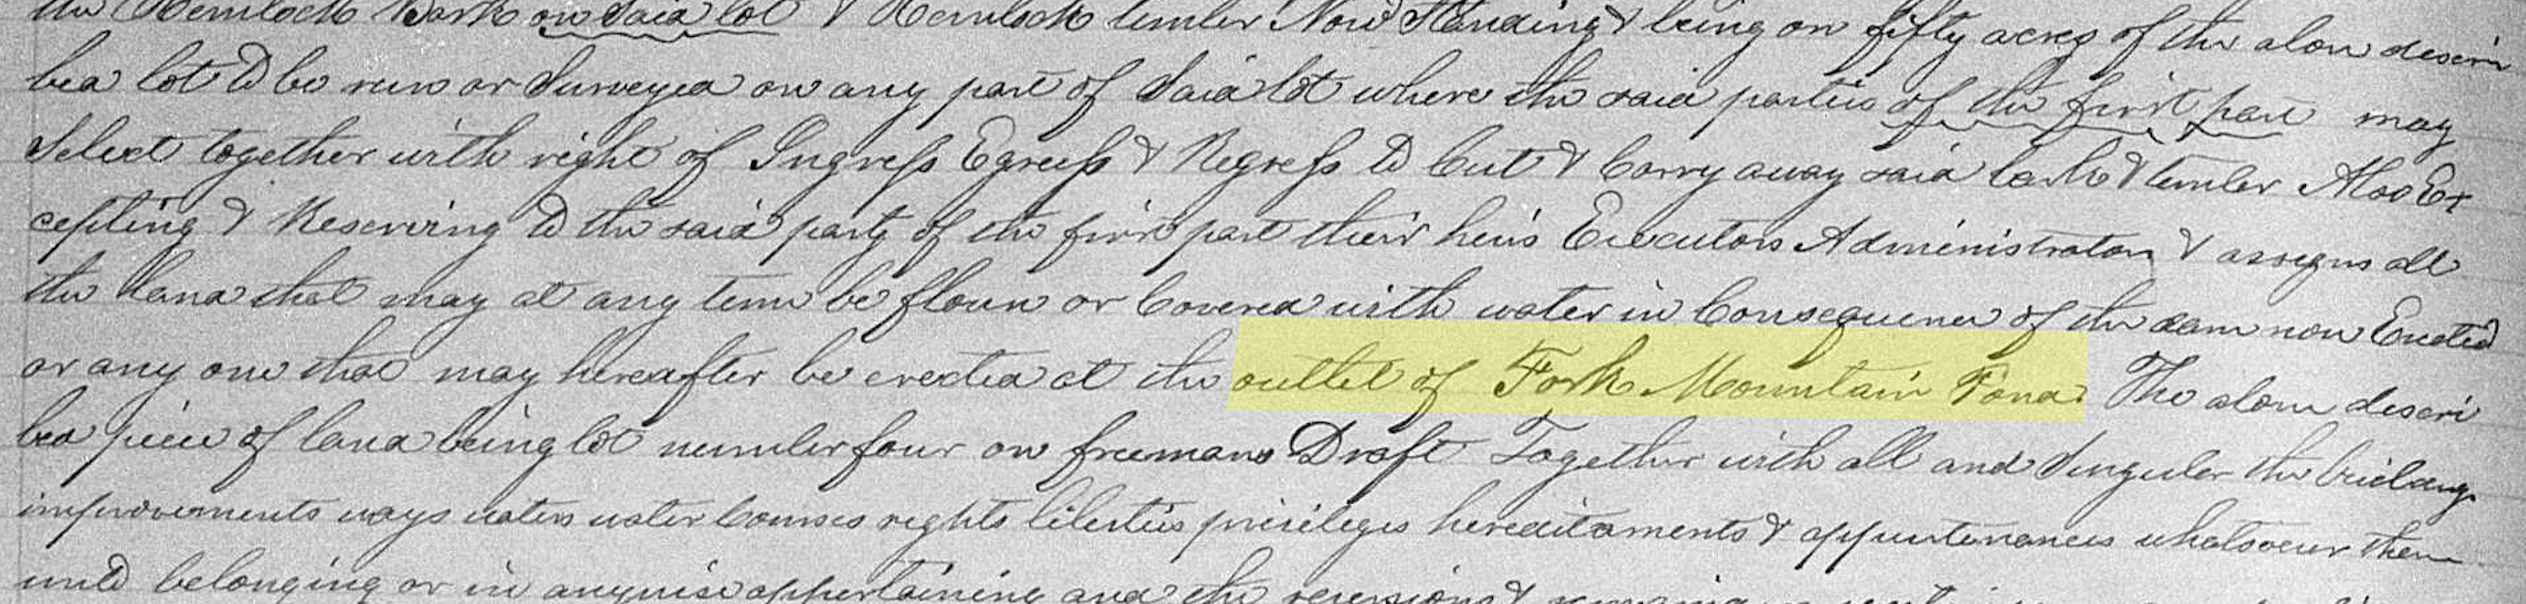 the Hemlock Bark on said lot & Hemlock timber Now Standing & being on fifty acres of the above descri
bed lot to be run or Surveyed on any part of Said lot where the said parties of the first part may
Select together with right of Ingress Egress & Regress to Cut & Carry away said bark & timber Also Ex
cepting & Reserving to the said party of the first part their heirs Executors Administrators & assigns all
the land that may at any time be flown or Covered with water in Consequence of the dam now Erected
or any one that may hereafter be erected at the outlet of Fork Mountain Pond. The above descri
bed piece of land being lot number four on freemans Draft Together with all and Singular the buildings
improvements ways waters water Courses rights liberties privileges hereditaments & appurtenances whatsoever there
unto belonging or in anywise appertaining and the reversions &